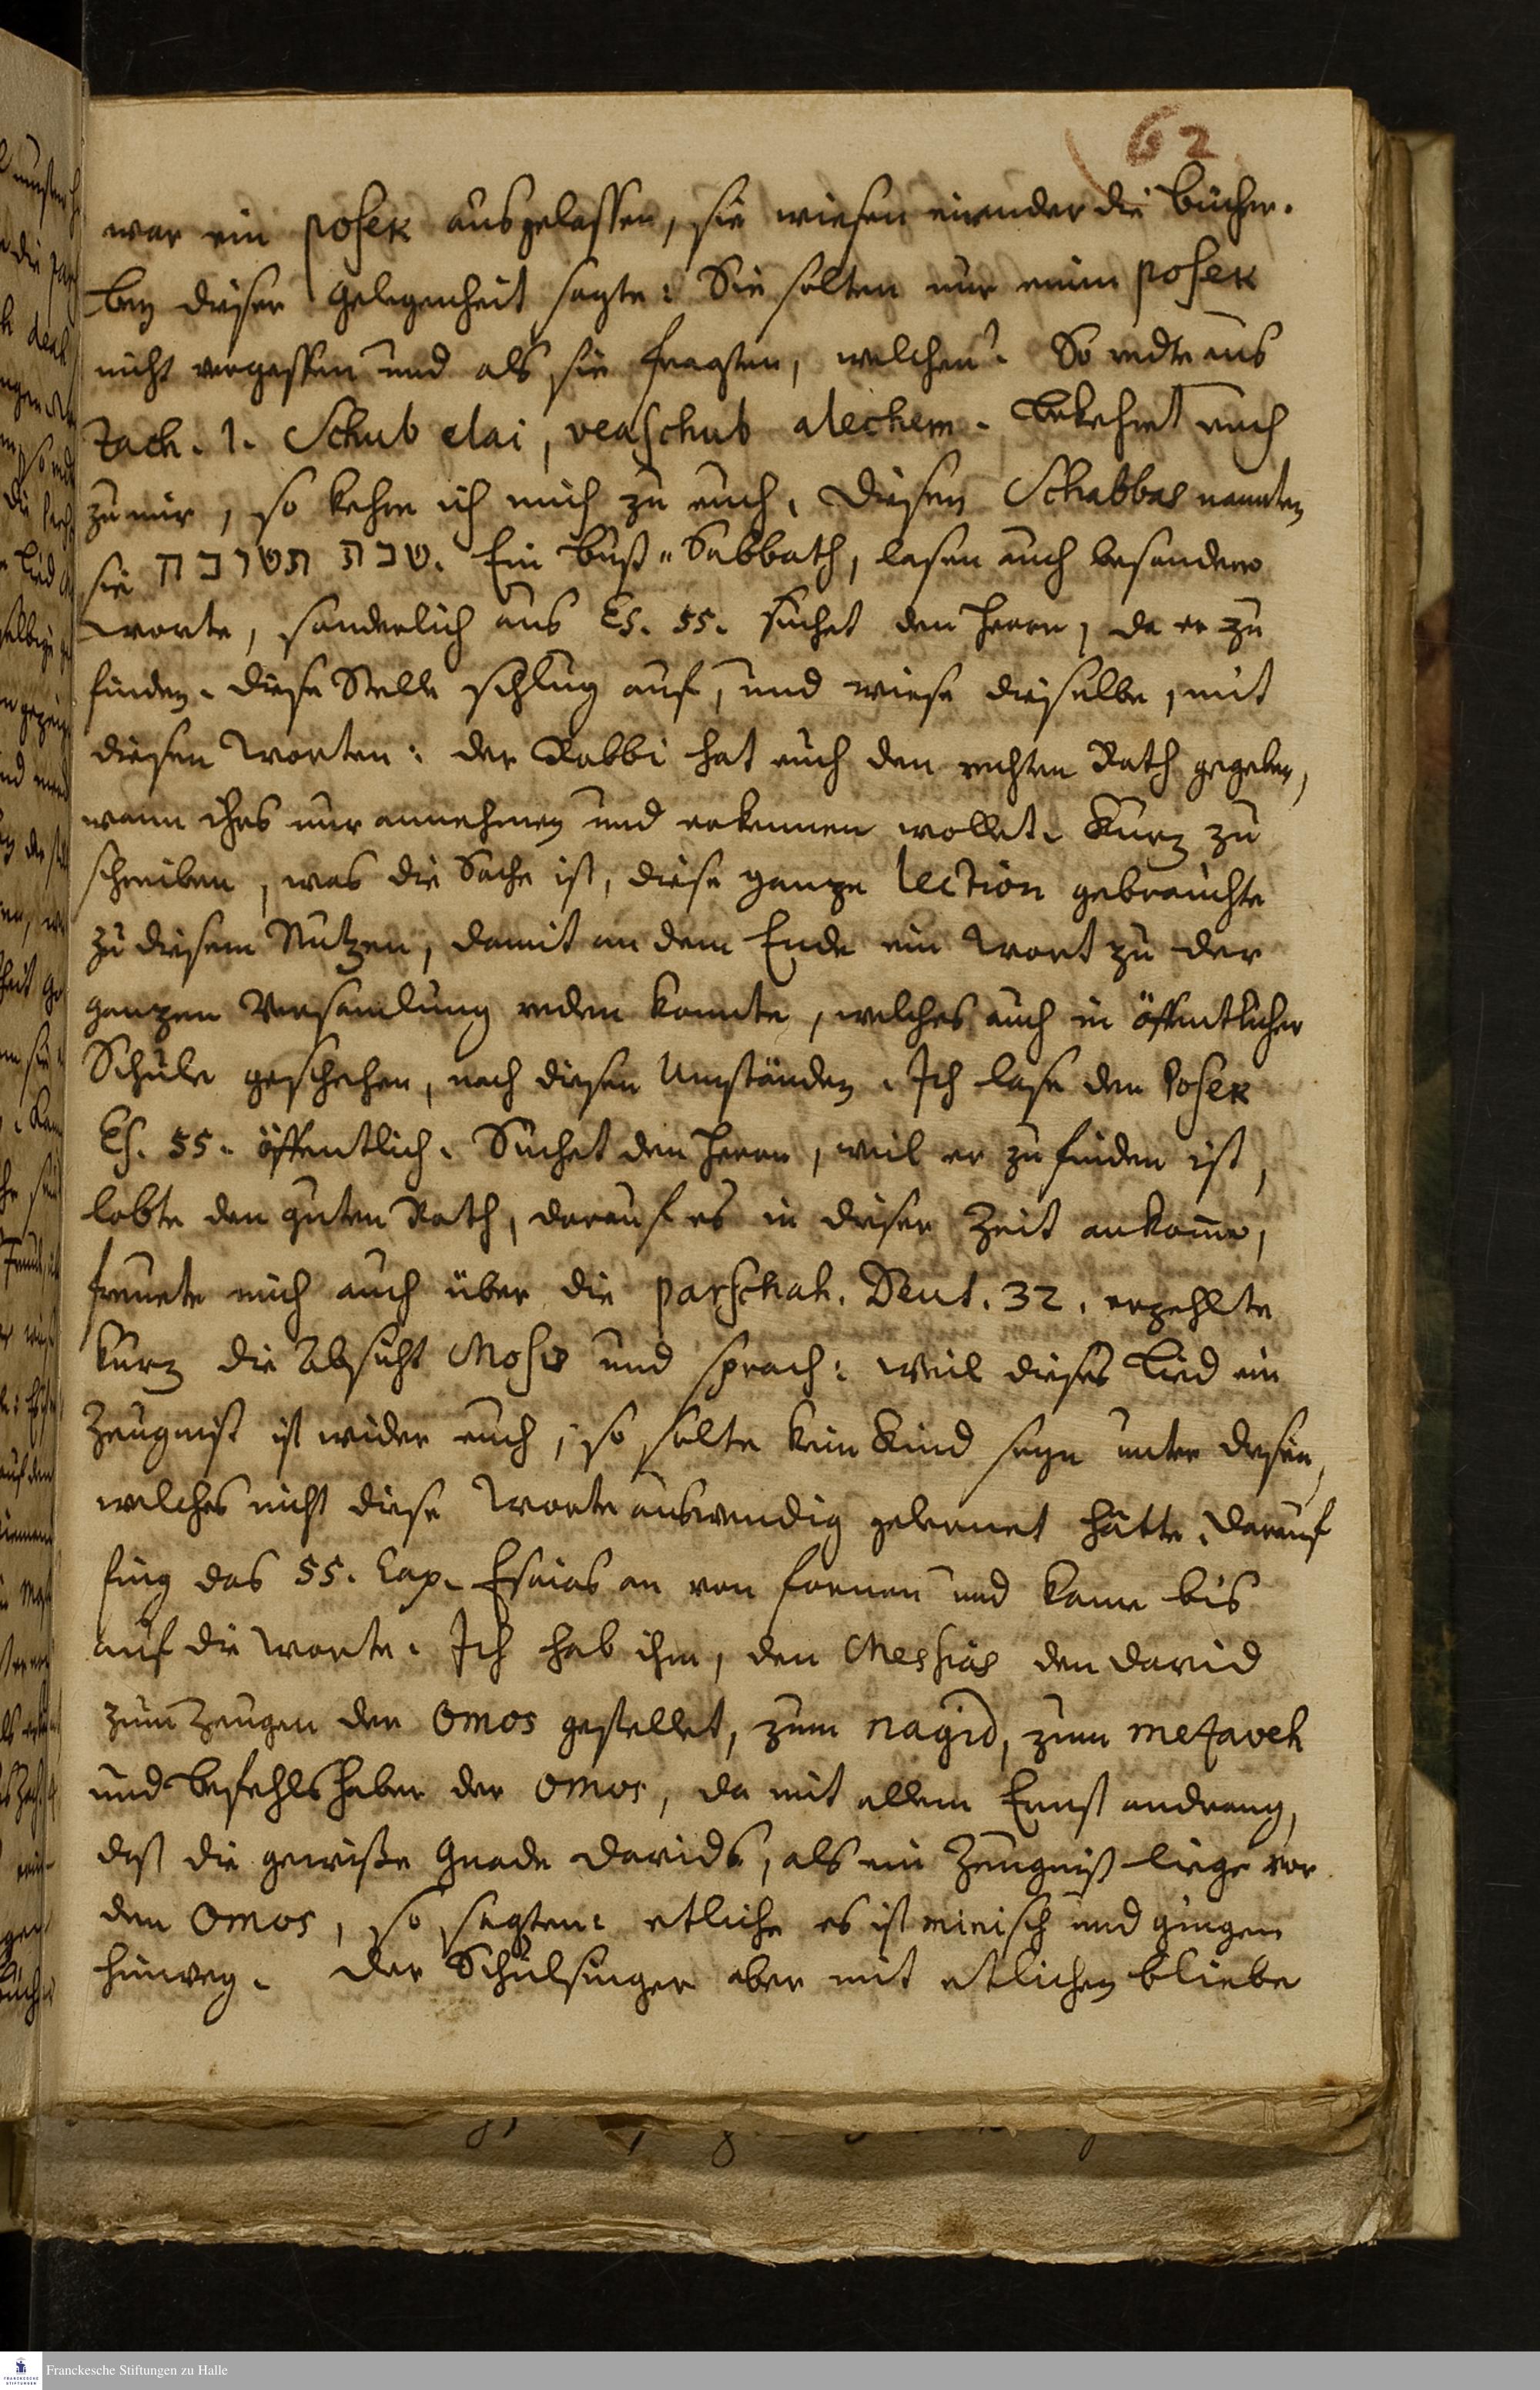 62
war ein posek ausgelassen, sie wiesen einander die Bücher.
bey dieser Gelegenheit sagte: Sie solten nur einen posek
nicht vergessen und als sie fragten, welchen? So redte aus
Zach. 1. Schub elai, veaschub alechem. Bekehret euch
zu mir, so kehre ich mich zu euch. Diesen Schabbas nannten
sie שבת תשובה. Ein Buß-Sabbath, lasen auch besondere
Worte, sonderlich aus Es. 55. suchet den Herrn, da er zu
finden. diese Stelle schlug auf, und wiese dieselbe, mit
diesen Worten: der Rabbi hat euch den rechten Rath gegeben,
wann ihrs nur annehmen und erkennen wollet. Kurz zu
schreiben, was die Sache ist, diese ganze Lection gebrauchte
zu diesem Nutzen, damit an dem Ende ein Wort zu der
ganzen Versamlung reden konnte, welches auch in öffentlicher
Schule geschehen, nach diesen Umständen. Ich lase den Posek
Es. 55. öffentlich. Suchet den Herrn, weil er zu finden ist,
lobte den guten Rath, darauf es in dieser Zeit ankom̅e,
freuete mich auch über die parschah. Deut. 32. erzehlte
kurz die Absicht Mosis und sprach: weil dieses Lied ein
Zeugnist ist wider euch, so solte kein Kind seyn unter diesen,
welches nicht diese Worte auswendig gelernet hätte. darauf
fing das 55. Cap. Esaias an von fornen und kame bis
auf die Worte. Ich hab ihn, den Messias den david
zum Zeugen den Omos gestellet, zum nagid, zum mezaveh
und befehlshaber der Omos, da mit allem Ernst andrang,
dass die gewisse Gnade davids, als ein Zeugniß liege vor
den Omos, so sagten: etliche es ist minisch und gingen
hinweg. der Schulsinger aber mit etlichen bliebe
Franckesche Stiftungen zu Halle